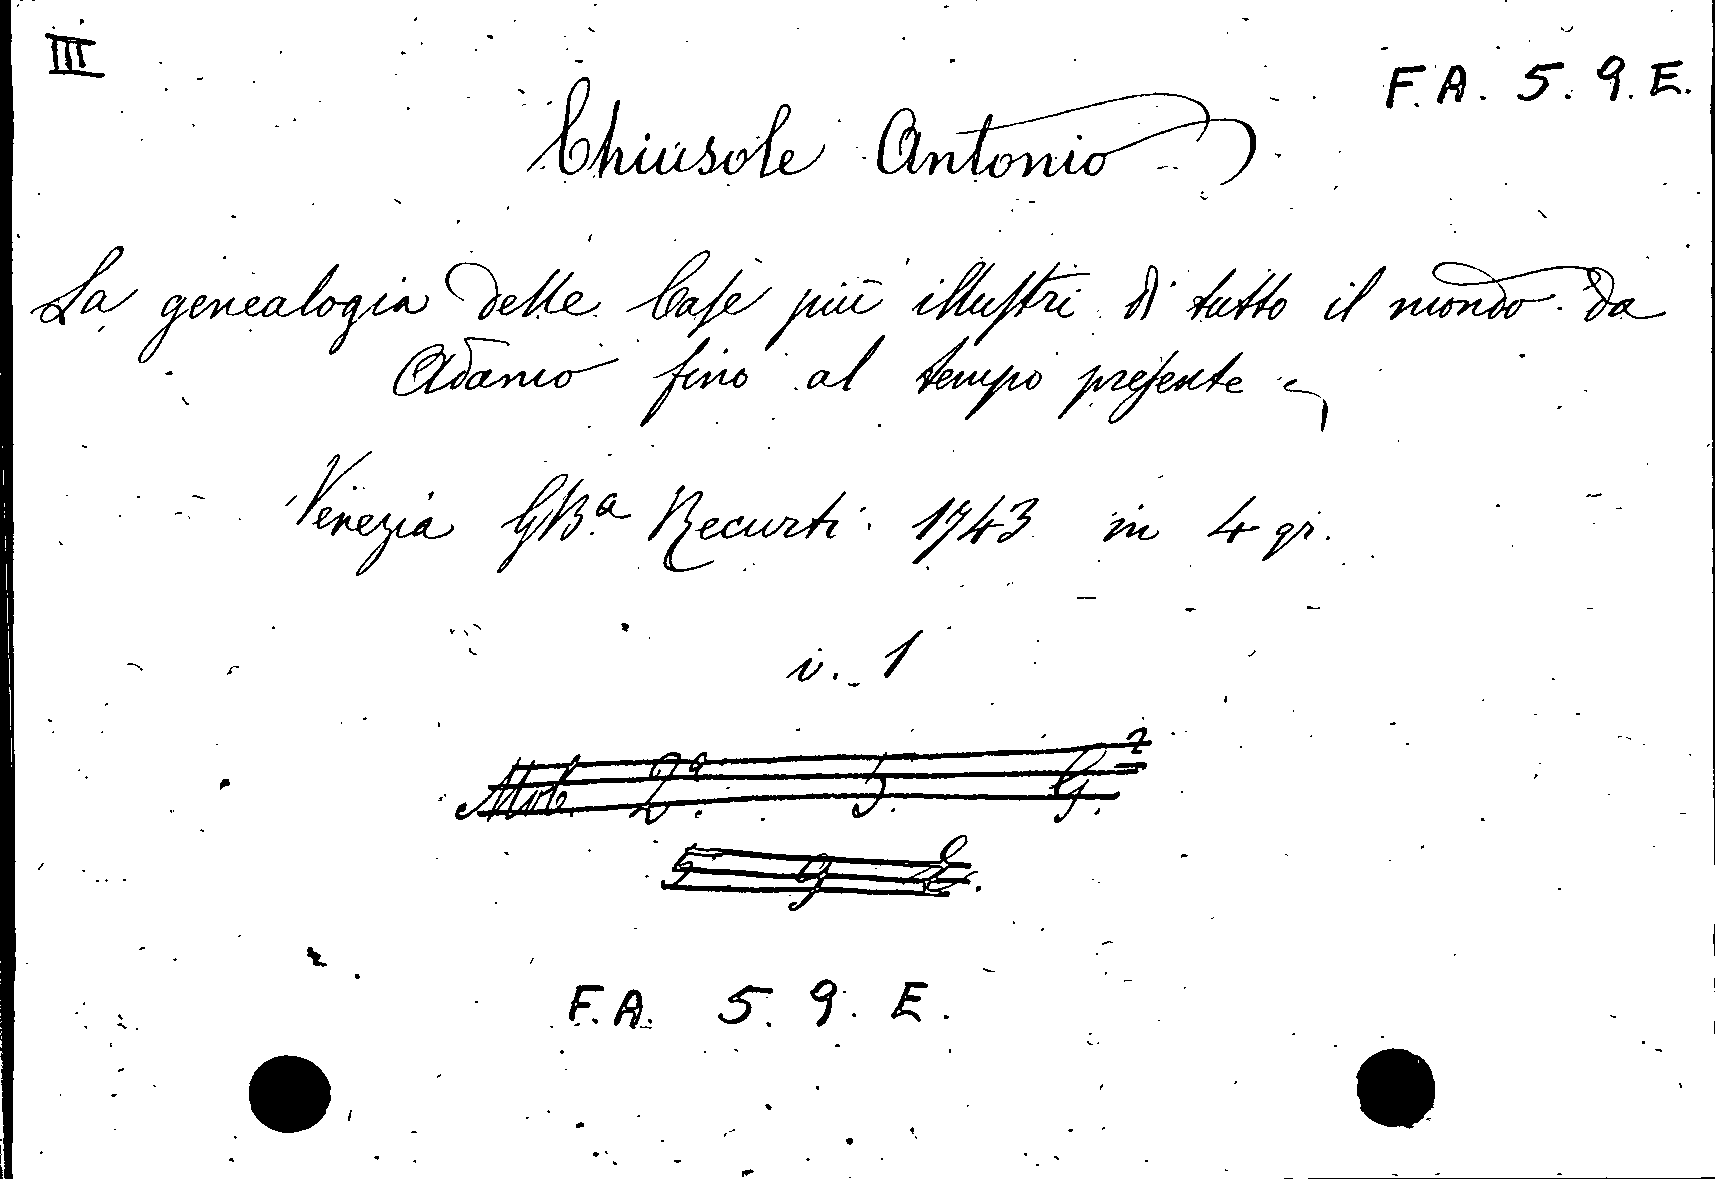 III
F. A. 5. 9. E.
Chiusole Antonio
La genealogia delle Case più illustri di tutto il mondo da
Adamo fino al tempo presente
Venezia GBa. Recurti. 1743 in 4 gr.
v. 1
2a. 5. G.
5 9 E.
F. A. 5. 9. E.